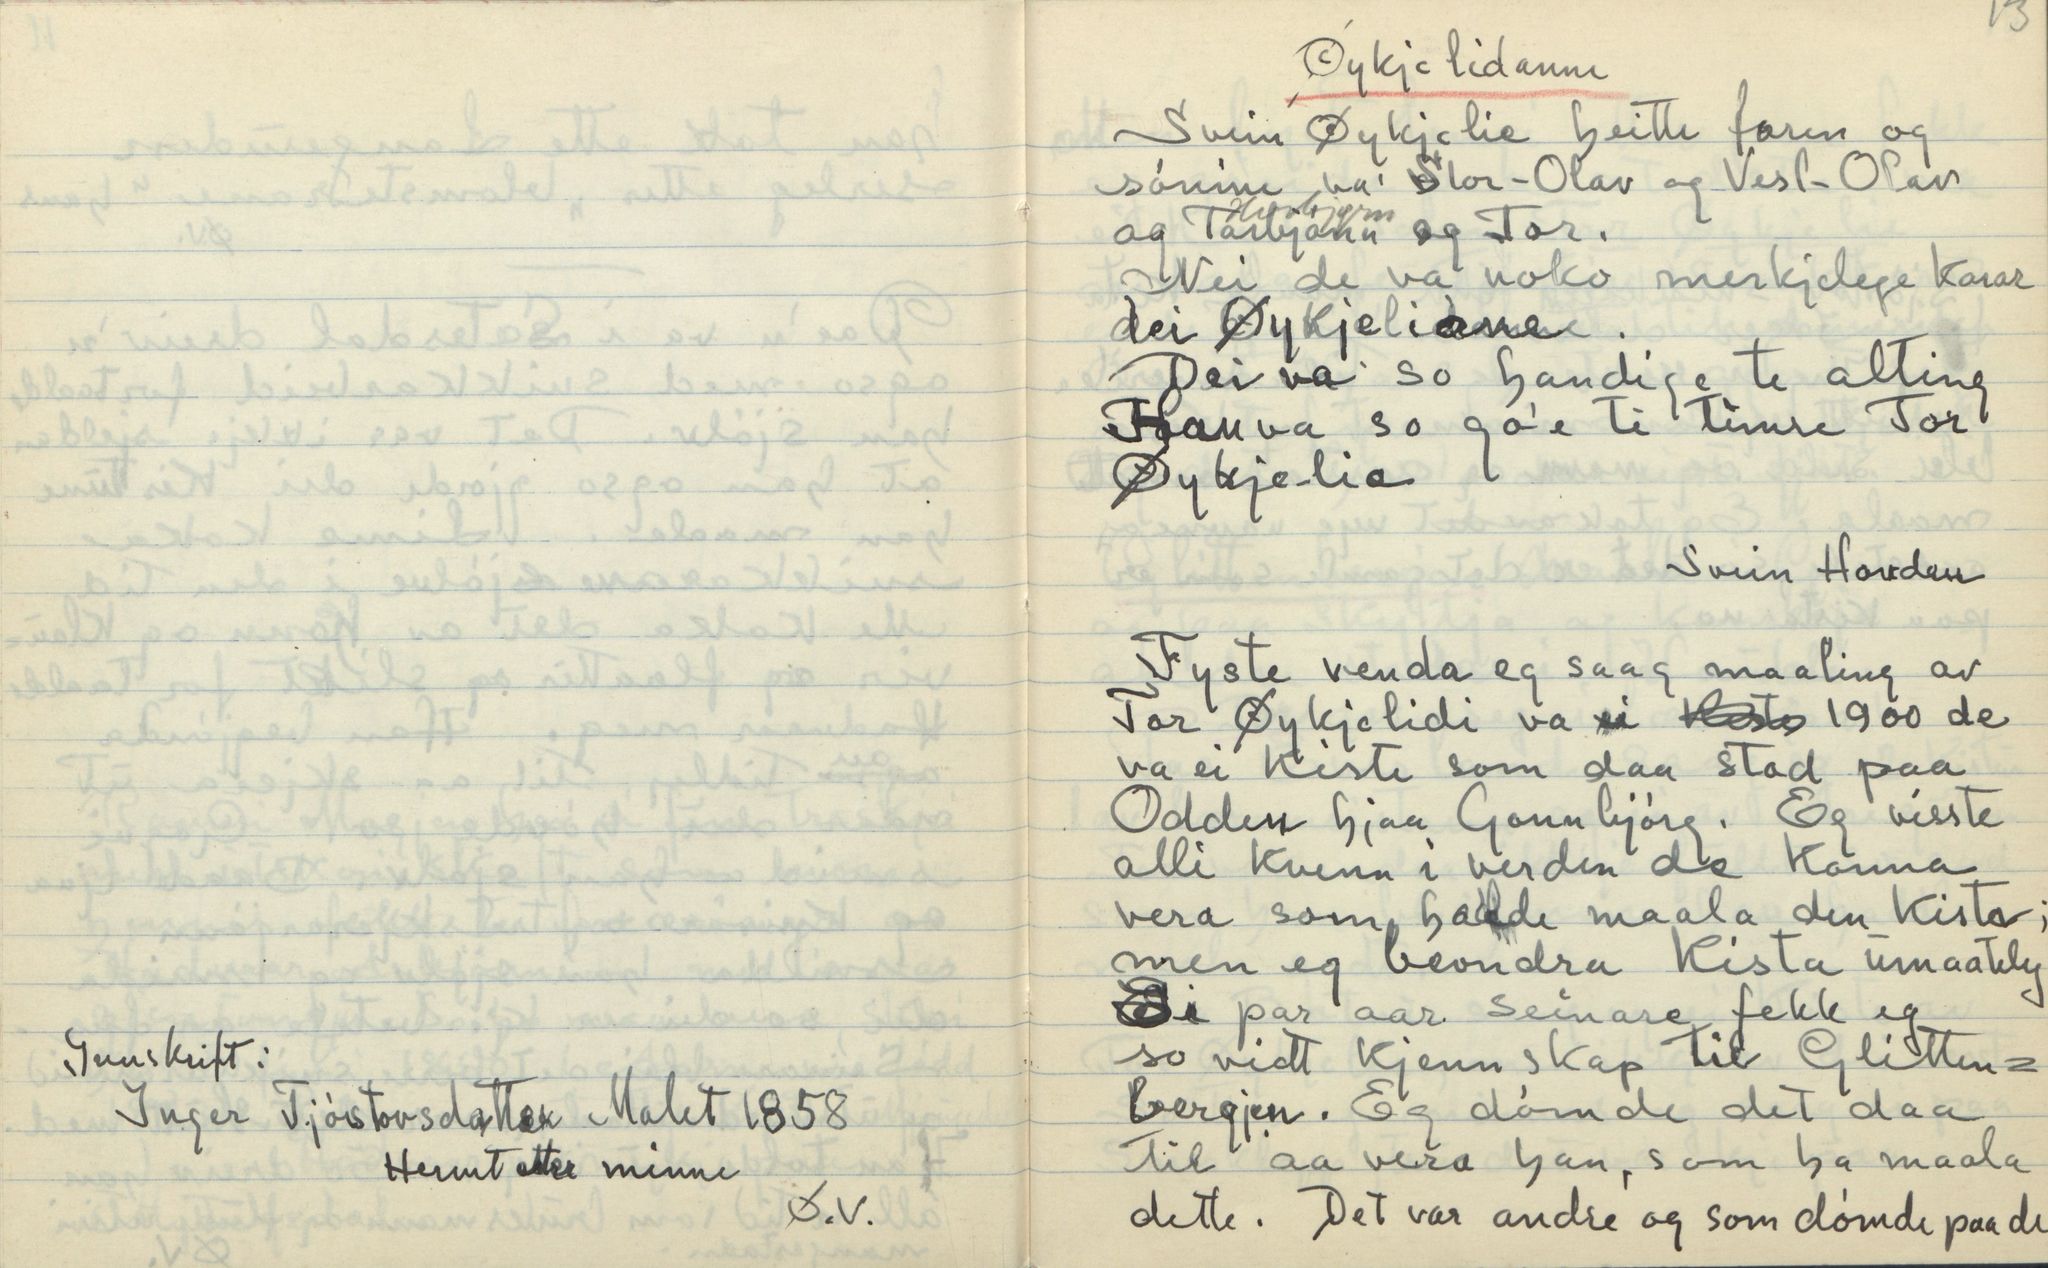 Innskrift:
Inger Tjóstovsdatter Malet 1858
Hermt etter minne
Ø.V.
13
Øykjelidanne
Svein Øykjelie heitte faren og
sónine va' Stor-Olav og Vesl-Olav
og Torbjónn og Tor.
Nei de va noko merkjelege karar
dei Øykjeliane.
Dei va so handige te alting
Han va so go'e te timre Tor
Øykje-lie
Svein Hovden
Fyste venda eg saag maaling av
Tor Øykjelidi va i 1900 de
va ei kiste som daa stod paa
Odden hjaa Gonnbjórg. Eg visste
alli kvenn i verden de konna
vera som hadde maala den kista;
men eg beundra kista umaateleg
Ei par aar seinare fekk eg
so vidt kjennskap til Glitten=
bergjen. Eg dómde det daa
til aa vera han, som ha maala
dette. Det var andre og som dómde paa de